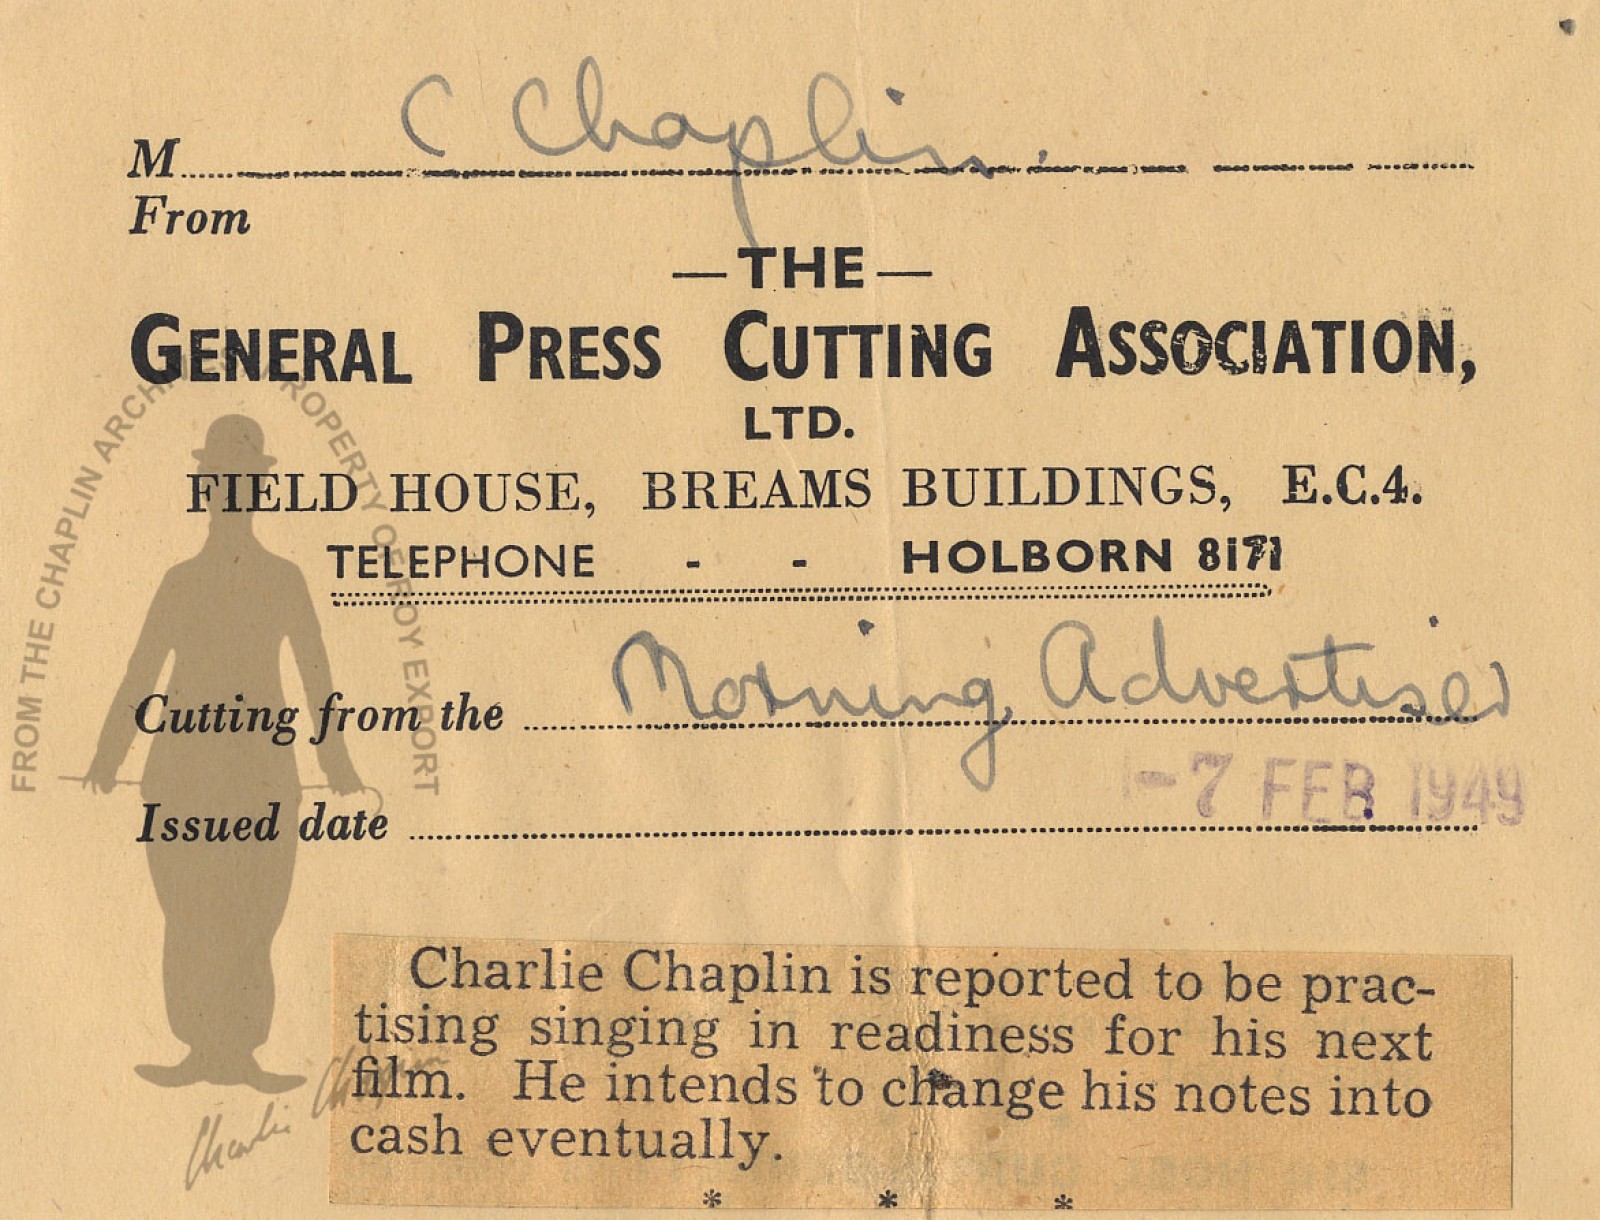 M C Chaplin.
From
— THE —
GENERAL PRESS CUTTING ASSOCIATION,
LTD.
FIELD HOUSE, BREAMS BUILDINGS, E.C.4.
TELEPHONE - - HOLBORN 8171
Cutting from the Morning Advertiser
Issued date -7 FEB 1949
Charlie Chaplin is reported to be prac-
tising singing in readiness for his next
film. He intends to change his notes into
cash eventually.
* * *
FROM THE CHAPLIN ARCHIVES PROPERTY OF ROY EXPORT
Charlie Chaplin